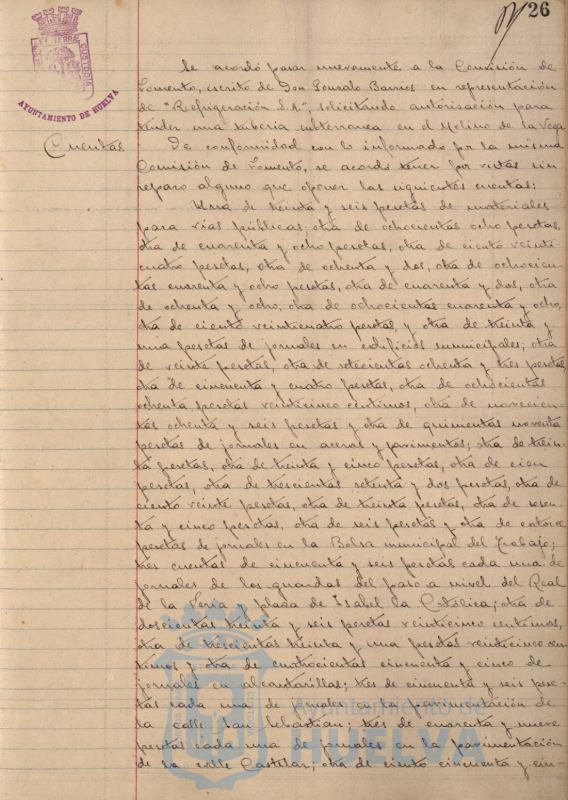 26
AYUNTAMIENTO DE HUELVA
CUSTODIA
Se acordó pasar nuevamente a la Comisión de
Fomento, escrito de Don Gonzalo Barrios en representación
de "Refrigeración S.A." solicitando autorisación para
tender una tuberia subterranea en el Molino de la Vega
Cuentas
De conformidad con lo informado por la misma
Comisión de Fomento, se acordó tener por vistas sin
reparo alguno que oponer las siguientes cuentas:
Una de treinta y seis pesetas de materiales
para vias públicas; otra de ochocientas ocho pesetas,
otra de cuarenta y ocho pesetas, otra de ciento veinti-
cuatro pesetas, otra de ochenta y dos, otra de ochocien-
tas cuarenta y ocho pesetas, otra de cuarenta y dos, otra
de ochenta y ocho, otra de ochocientas cuarenta y ocho,
otra de ciento veinticuatro pesetas, y otra de treinta y
una pesetas de jornales en edificios municipales; otra
de veinte pesetas, otra de setecientas ochenta y tres pesetas,
otra de cincuenta y cuatro pesetas, otra de ochocientas
ochenta pesetas veinticinco centimos, otra de novecien-
tas ochenta y seis pesetas y otra de quinientas noventa
pesetas de jornales en aceras y pavimentos; otra de trein-
ta pesetas, otra de treinta y cinco pesetas, otra de cien
pesetas, otra de trescientas setenta y dos pesetas, otra de
ciento veinte pesetas, otra de treinta pesetas, otra de sesen-
ta y cinco pesetas, otra de seis pesetas y otra de catorce
pesetas de jornales en la Bolsa municipal del Trabajo;
tres cuentas de cincuenta y seis pesetas cada una de
jornales de los guardas del paso a nivel del Real
de la Feria y plaza de Isabel la Católica; otra de
doscientas treinta y seis pesetas veinticinco centimos,
otra de trescientas treinta y una pesetas veinticinco cen-
timos y otra de cuatrocientas cincuenta y cinco de
jornales en alcantarillas; tres de cincuenta y seis pese-
tas cada una de jornales en la pavimentación de
la calle San Sebastian; tres de cuarenta y nueve
pesetas cada una de jornales en la pavimentación
de la calle Castelar; otra de ciento cincuenta y cin-
Ayuntamiento de
HUELVA